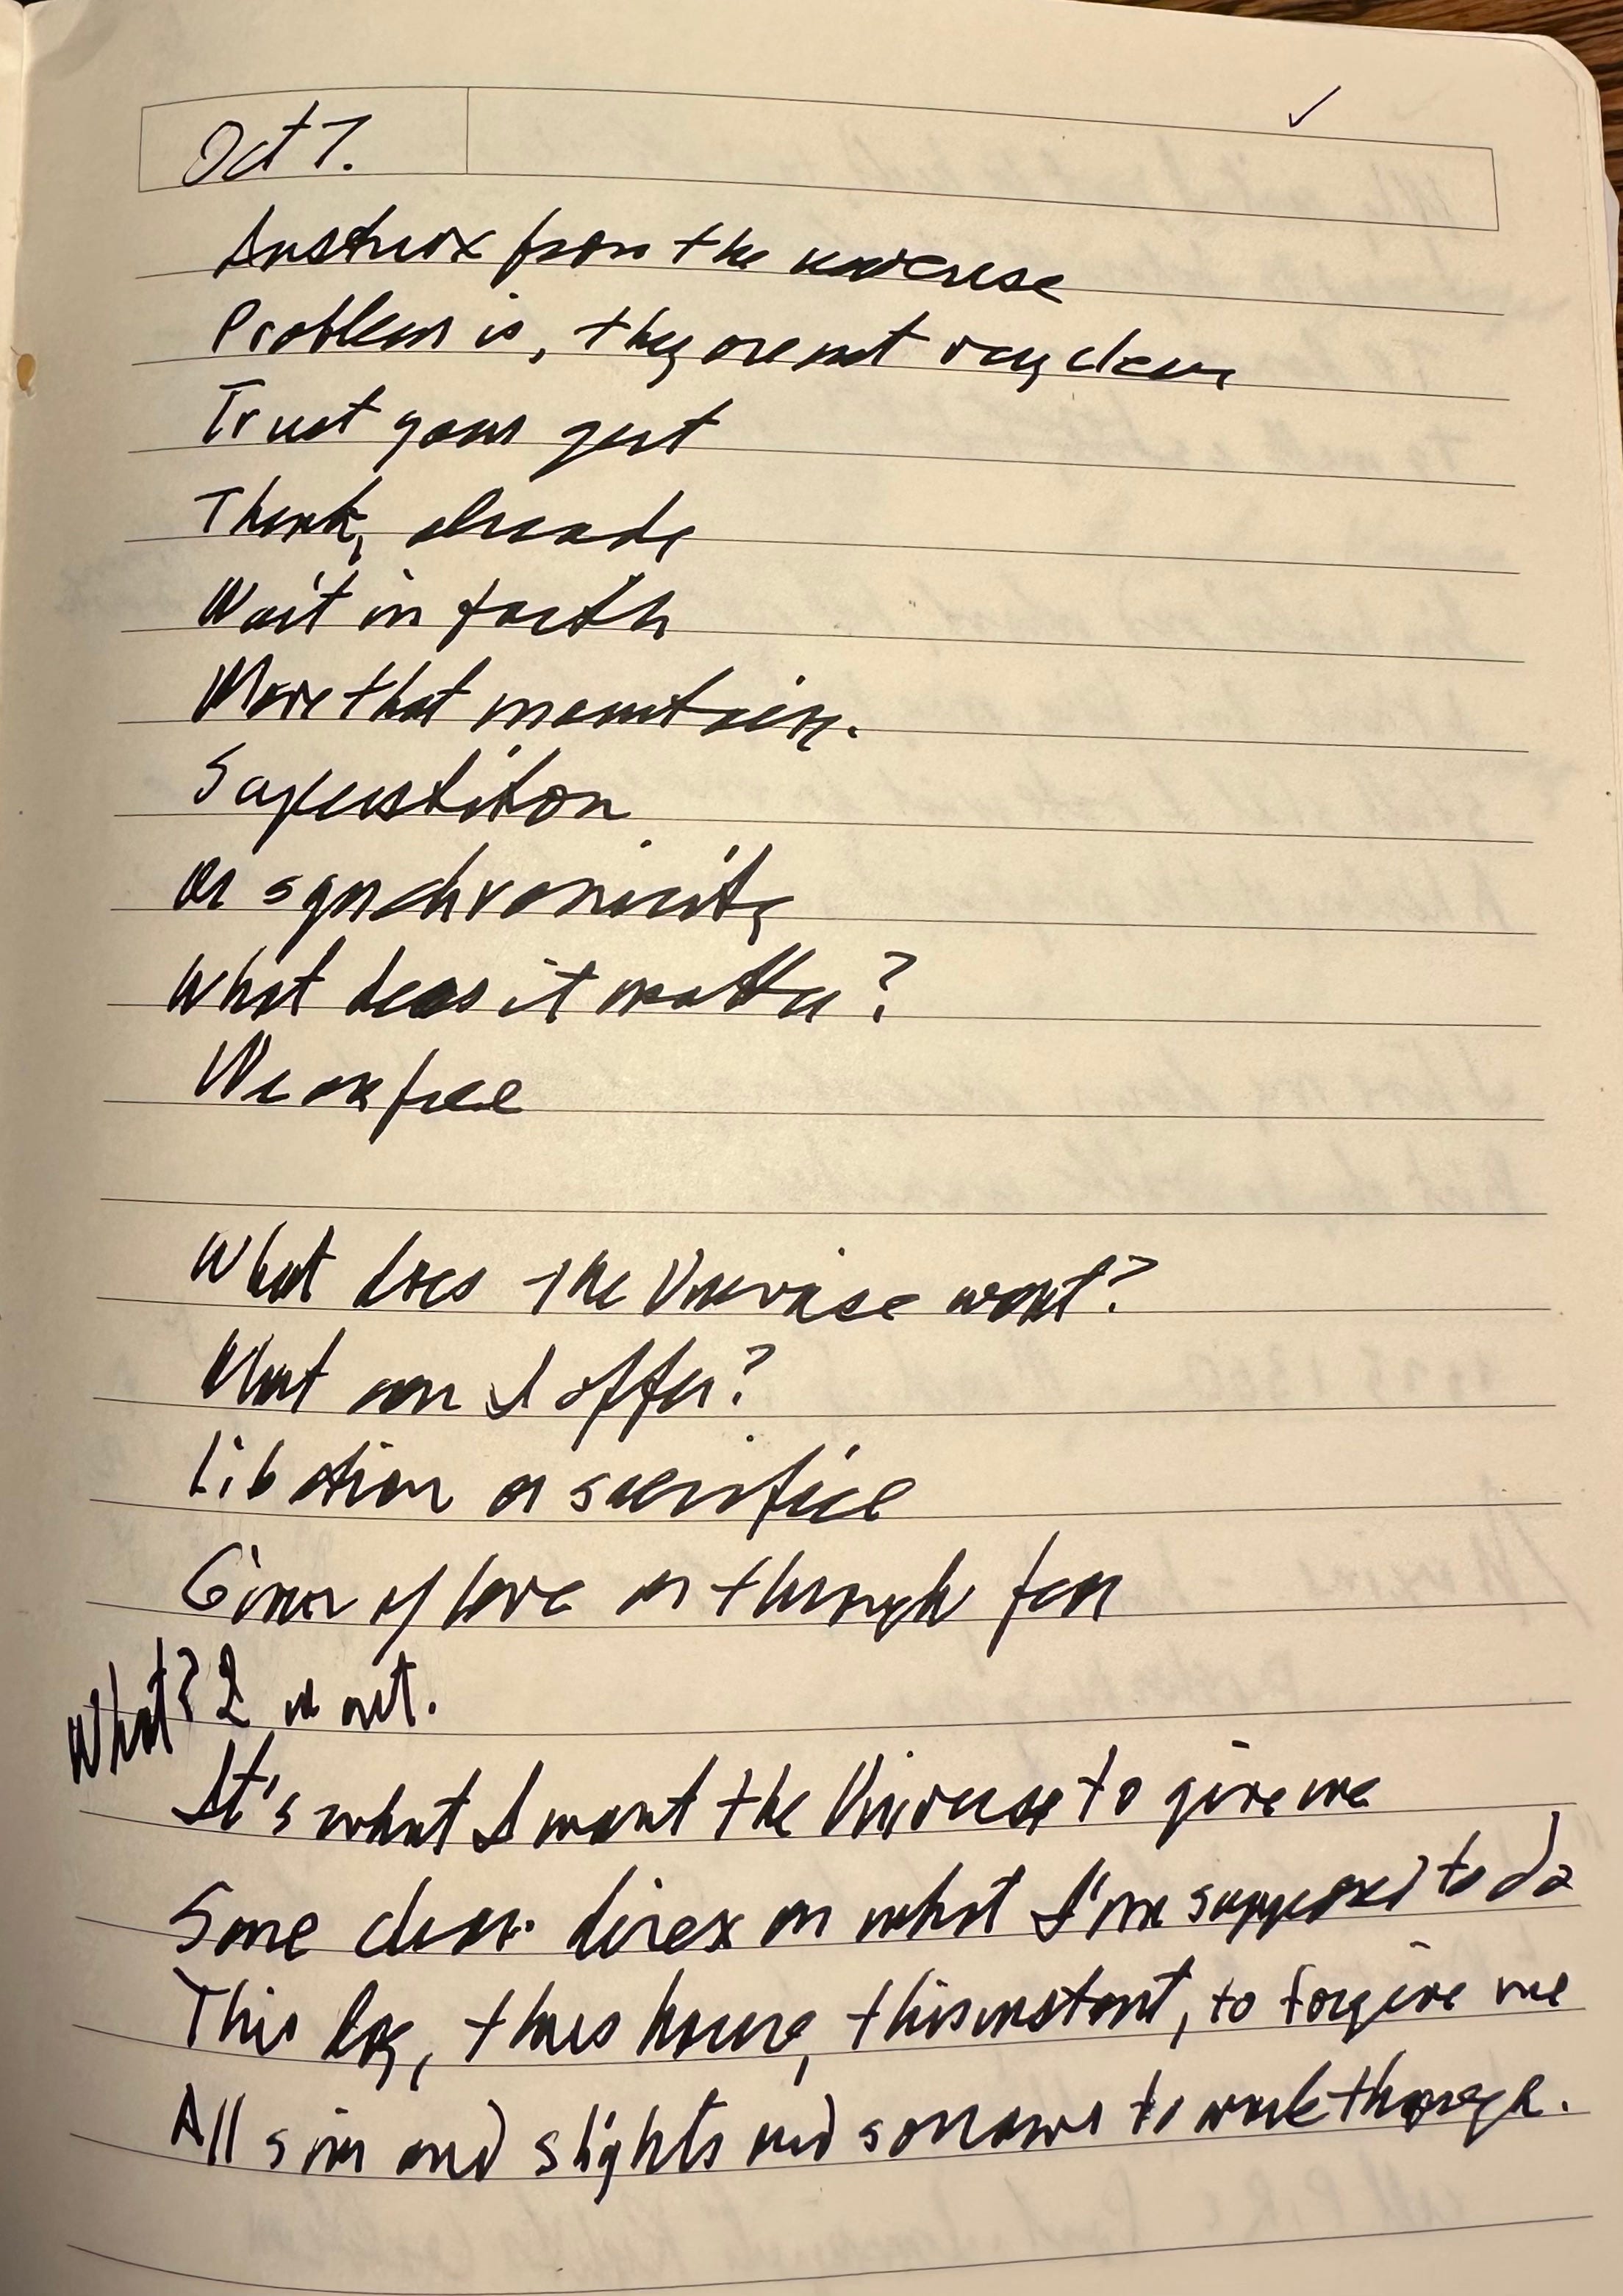 Oct 7.
Instrux from the universe
Problem is, they are not very clear
Trust your gut
Think, already
Wait in faith
Move that mountain.
Superstition
or synchronicity
What does it matter?
We are free
What does the Universe want?
What can I offer?
Libation or sacrifice
Given of love or through fear
What? I want.
It's what I want the Universe to give me
Some clear direx on what I'm supposed to do
This day, this hour, this instant, to forgive me
All sins and slights and sorrows to work through.